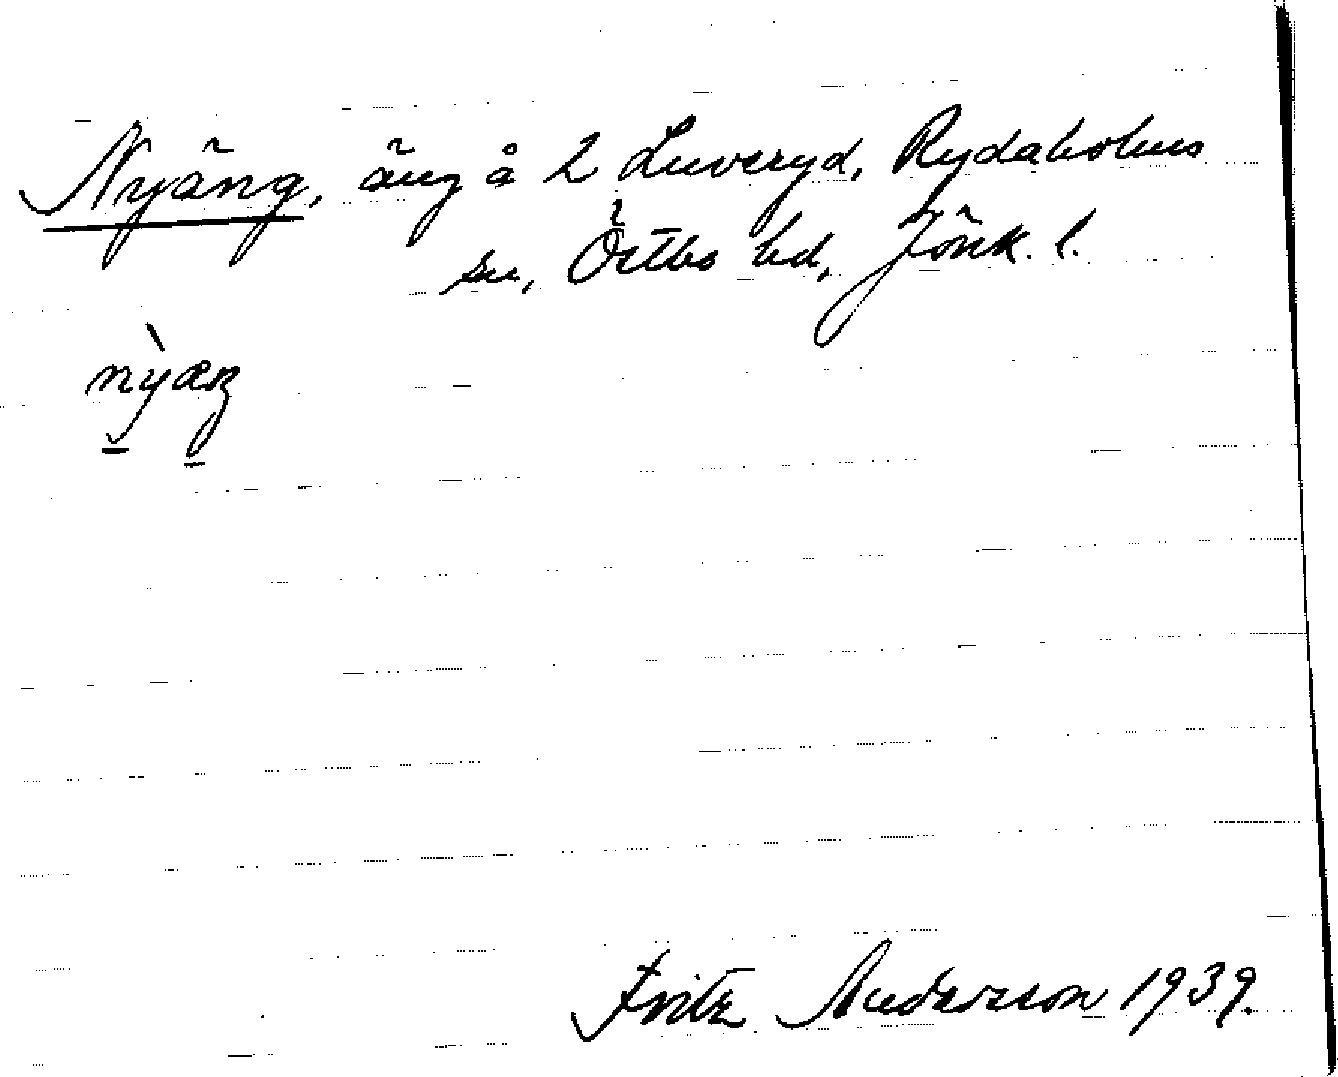 Nyäng, äng å 2 Luveryd, Rydaholms
sn, Östbo hd, Jönk. l.
nỳæŋ
Fritz Andersson 1939.